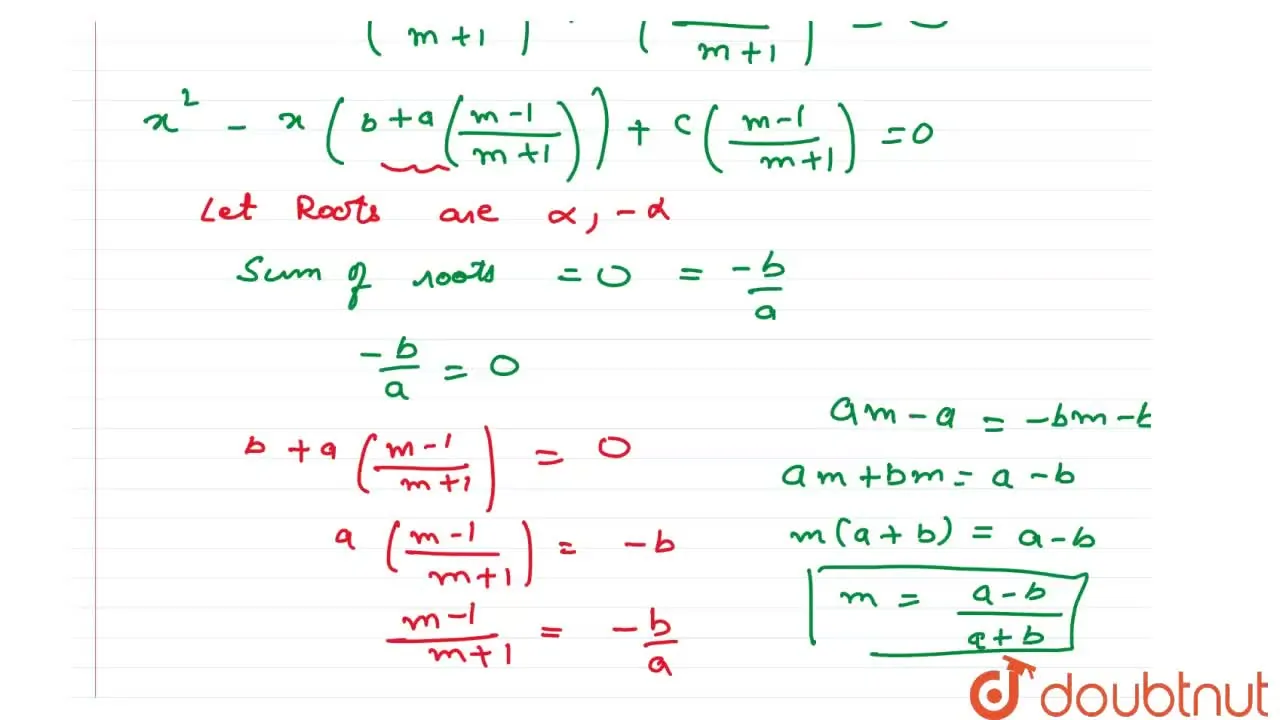 (m+1) (m+1) =
x² - x(b+a((m-1)/(m+1))) + c((m-1)/(m+1)) = 0
Let Roots are α, -α
Sum of roots = 0 = -b/a
-b/a = 0
b + a((m-1)/(m+1)) = 0
a((m-1)/(m+1)) = -b
(m-1)/(m+1) = -b/a
am - a = -bm - b
am + bm = a - b
m(a+b) = a - b
m = (a-b)/(a+b)
doubtnut